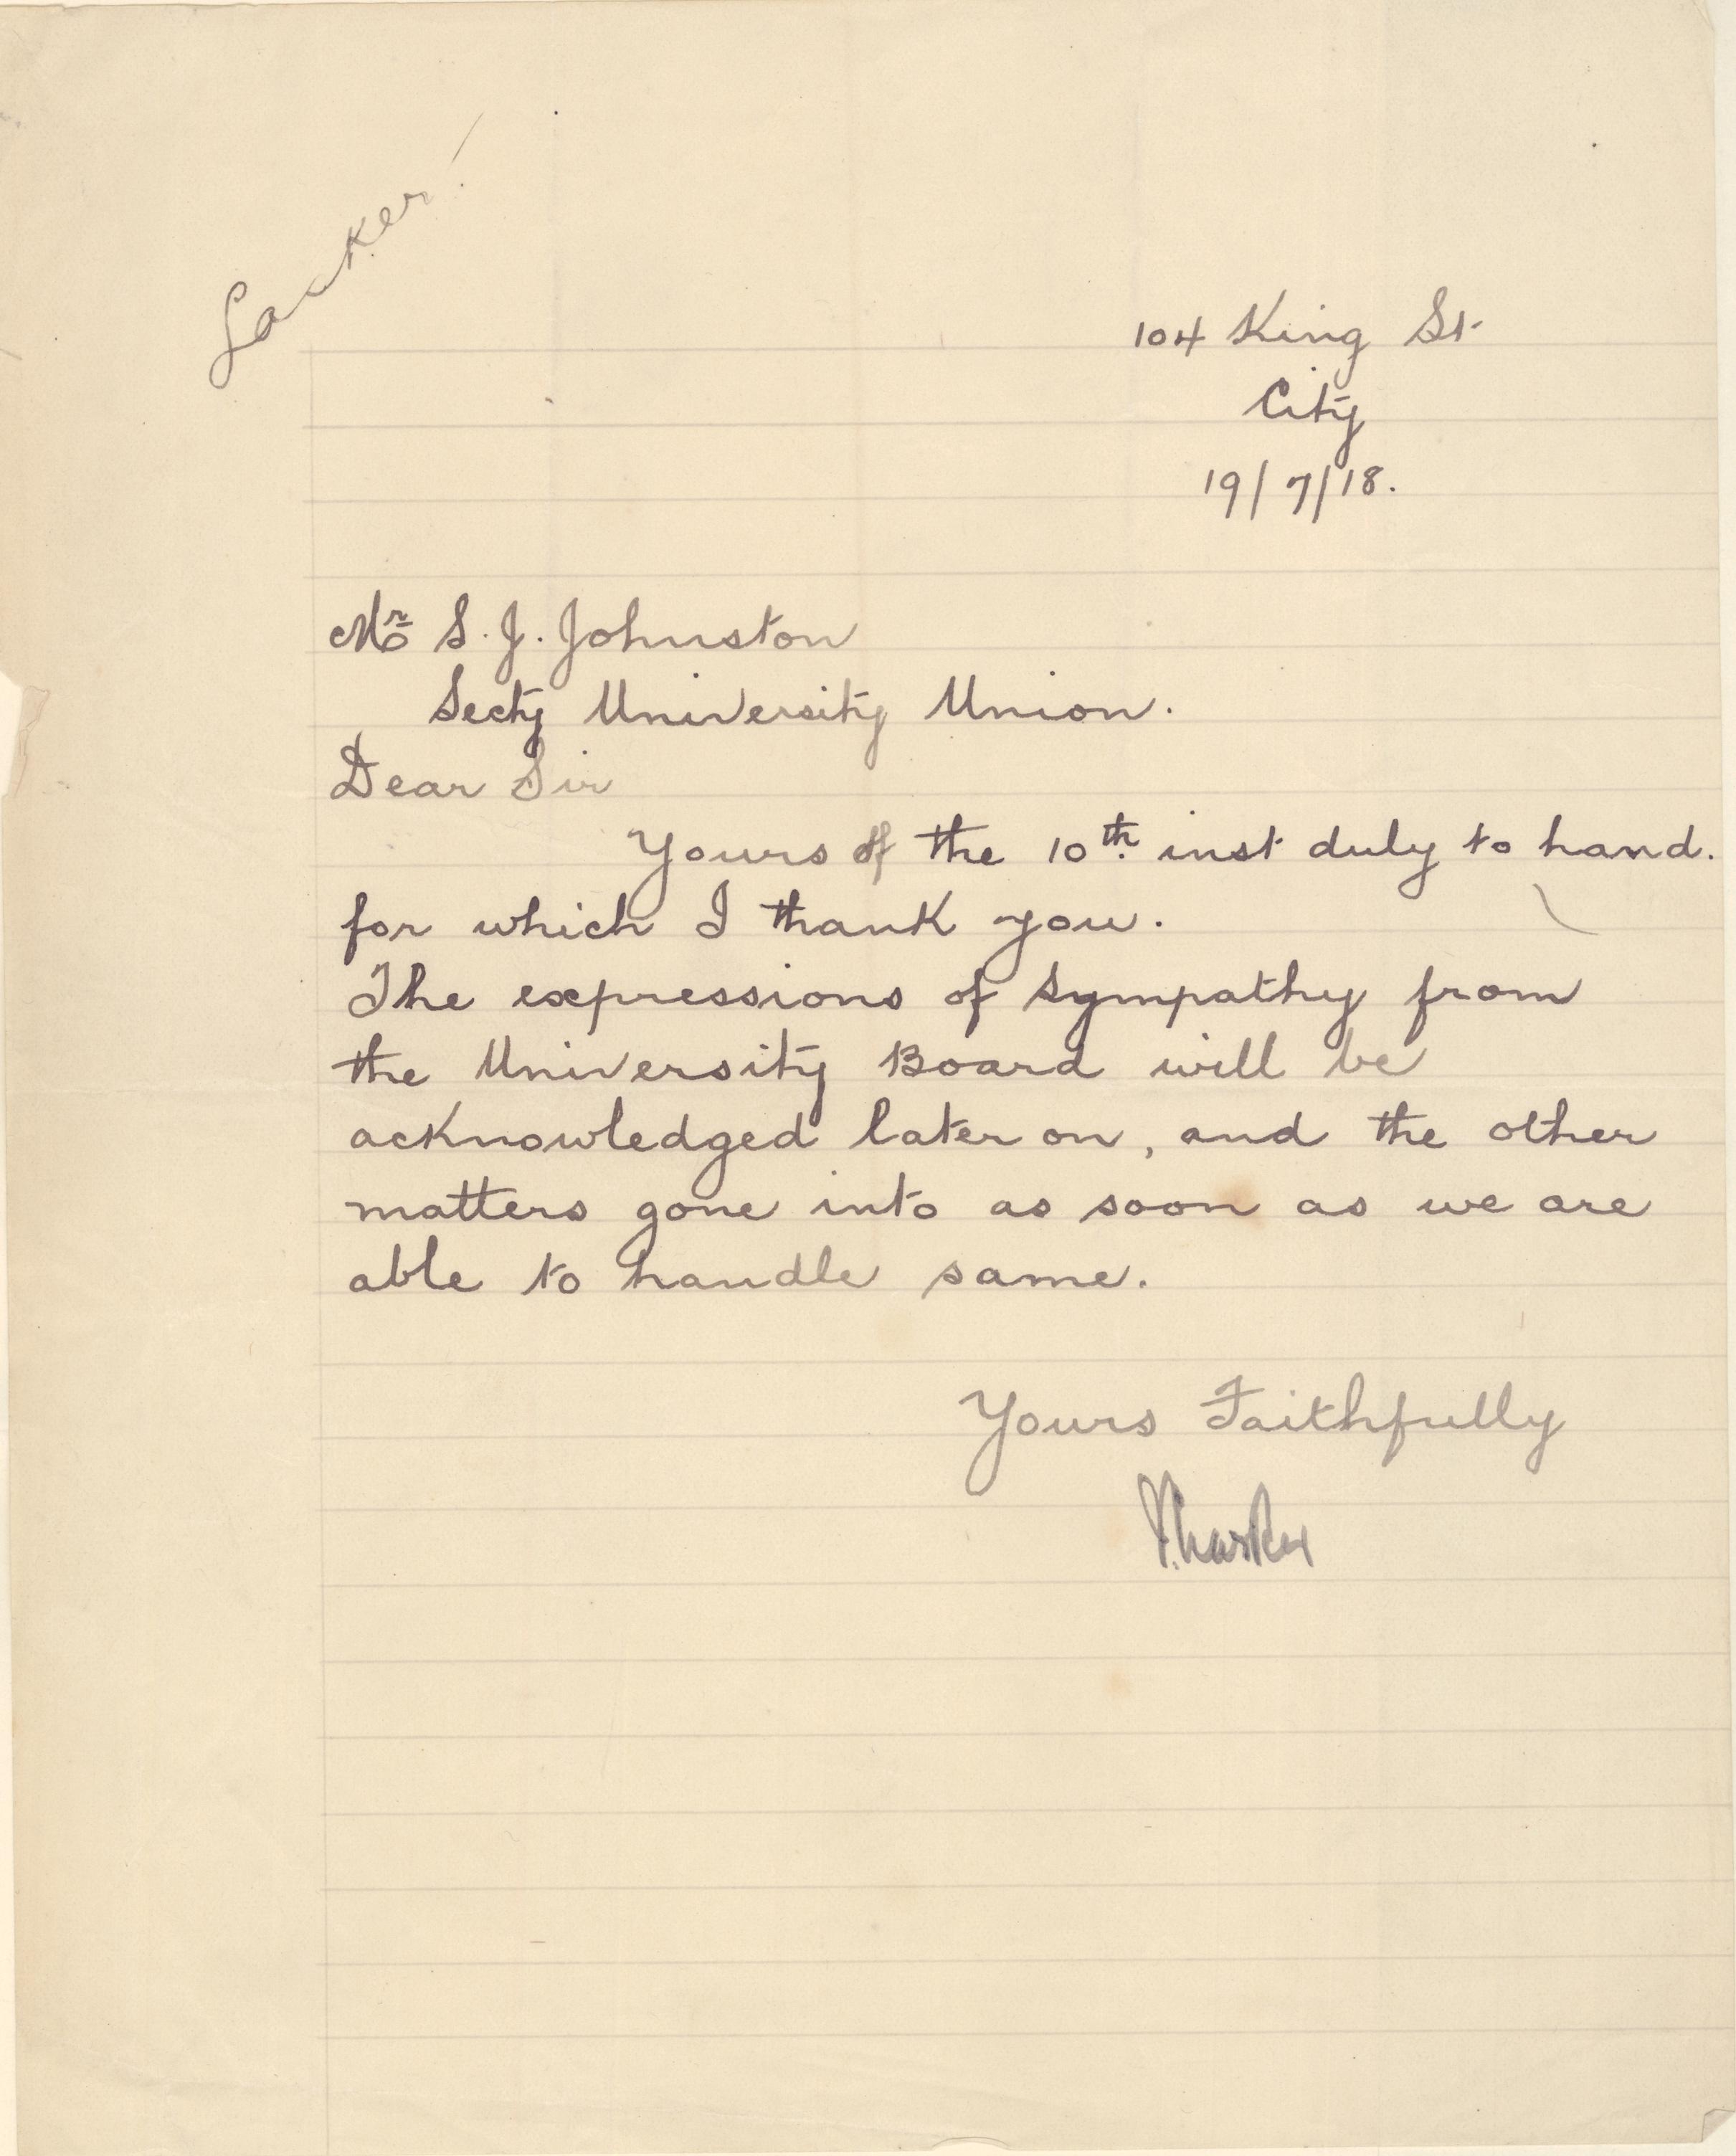 104 King St
City
19/7/18.
Mr S. J. Johnston
Secty University Union.
Dear Sir
Yours of the 10th. inst duly to hand.
for which I thank you.
The expressions of sympathy from
the University Board will be
acknowledged later on, and the other
matters gone into as soon as we are
able to handle same.
Yours Faithfully